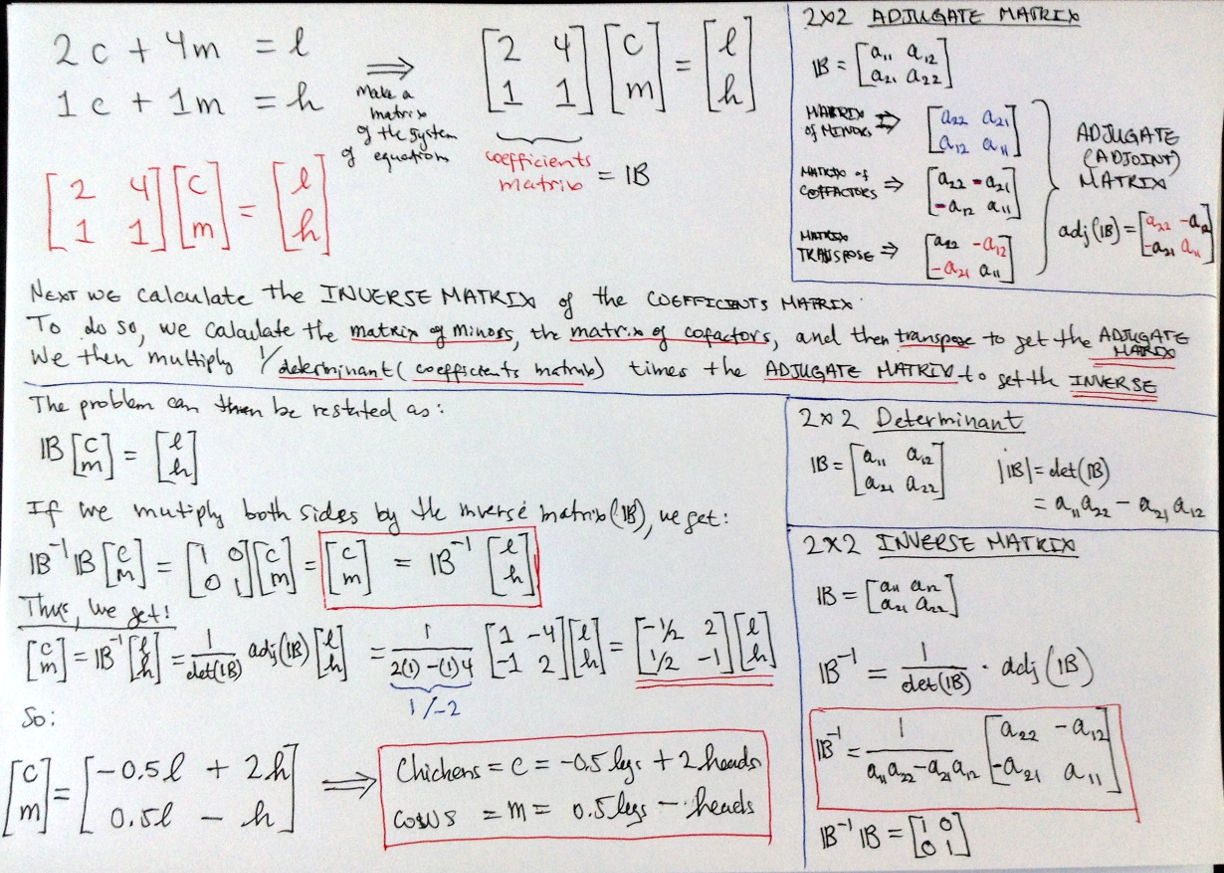 2c + 4m = l
1c + 1m = h
⟹
Make a
matrix
of the system
of equations
[2 4; 1 1] [c; m] = [l; h]
coefficients
matrix = IB
[2 4; 1 1] [c; m] = [l; h]
2X2 ADJUGATE MATRIX
IB = [a₁₁ a₁₂; a₂₁ a₂₂]
MATRIX
OF MINORS ⟹ [a₂₂ a₂₁; a₁₂ a₁₁]
MATRIX OF
COFFACTORS ⟹ [a₂₂ -a₂₁; -a₁₂ a₁₁]
MATRIX
TRANSPOSE ⟹ [a₂₂ -a₁₂; -a₂₁ a₁₁]
ADJUGATE
(ADJOINT)
MATRIX
adj(IB) = [a₂₂ -a₁₂; -a₂₁ a₁₁]
NEXT WE calculate the INVERSE MATRIX of the COEFFICIENTS MATRIX.
To do so, we calculate the matrix of minors, the matrix of cofactors, and then transpose to get the ADJUGATE
MATRIX
We then multiply 1/determinant(coefficients matrix) times the ADJUGATE MATRIX to get the INVERSE
The problem can then be restated as:
IB [c; m] = [l; h]
If we mutiply both sides by the inverse matrix(IB), we get:
IB⁻¹ IB [c; m] = [1 0; 0 1] [c; m] = [c; m] = IB⁻¹ [l; h]
Thus, we get!
[c; m] = IB⁻¹ [l; h] = 1/det(IB) adj(IB) [l; h] = 1/(2(1) - (1)4) [1 -4; -1 2] [l; h] = [-1/2 2; 1/2 -1] [l; h]
1/-2
So:
[c; m] = [-0.5l + 2h; 0.5l - h] ⟹
Chickens = c = -0.5 legs + 2 heads
cows = m = 0.5 legs - heads
2X2 Determinant
IB = [a₁₁ a₁₂; a₂₁ a₂₂]
|IB| = det(IB)
= a₁₁a₂₂ - a₂₁a₁₂
2X2 INVERSE MATRIX
IB = [a₁₁ a₁₂; a₂₁ a₂₂]
IB⁻¹ = 1/det(IB) · adj(IB)
IB⁻¹ = 1/(a₁₁a₂₂ - a₂₁a₁₂) [a₂₂ -a₁₂; -a₂₁ a₁₁]
IB⁻¹ IB = [1 0; 0 1]